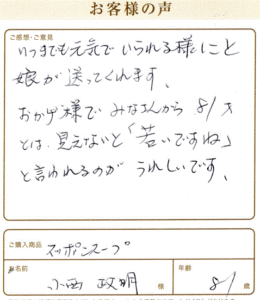 お客様の声
ご感想・ご意見
いつまでも元気でいられる様にと
娘が送ってくれます、
おかげ様でみなさんから81才
とは、見えないと「若いですね」
と言われるのがうれしいです、
ご購入商品
スッポンスープ
お名前
小西政明 様
年齢
81 歳